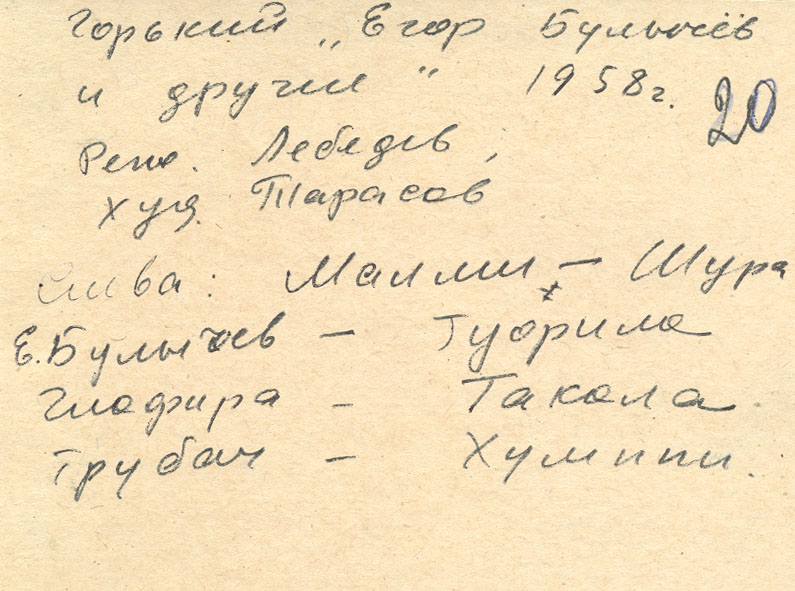 Горький „Егор Булычёв
и другие" 1958г. 20
Реж. Лебедев,
худ. Тарасов
Слева: Малми – Шура
Е. Булычев – Туорила
Глафира – Такала
Трубач – Хумппи.